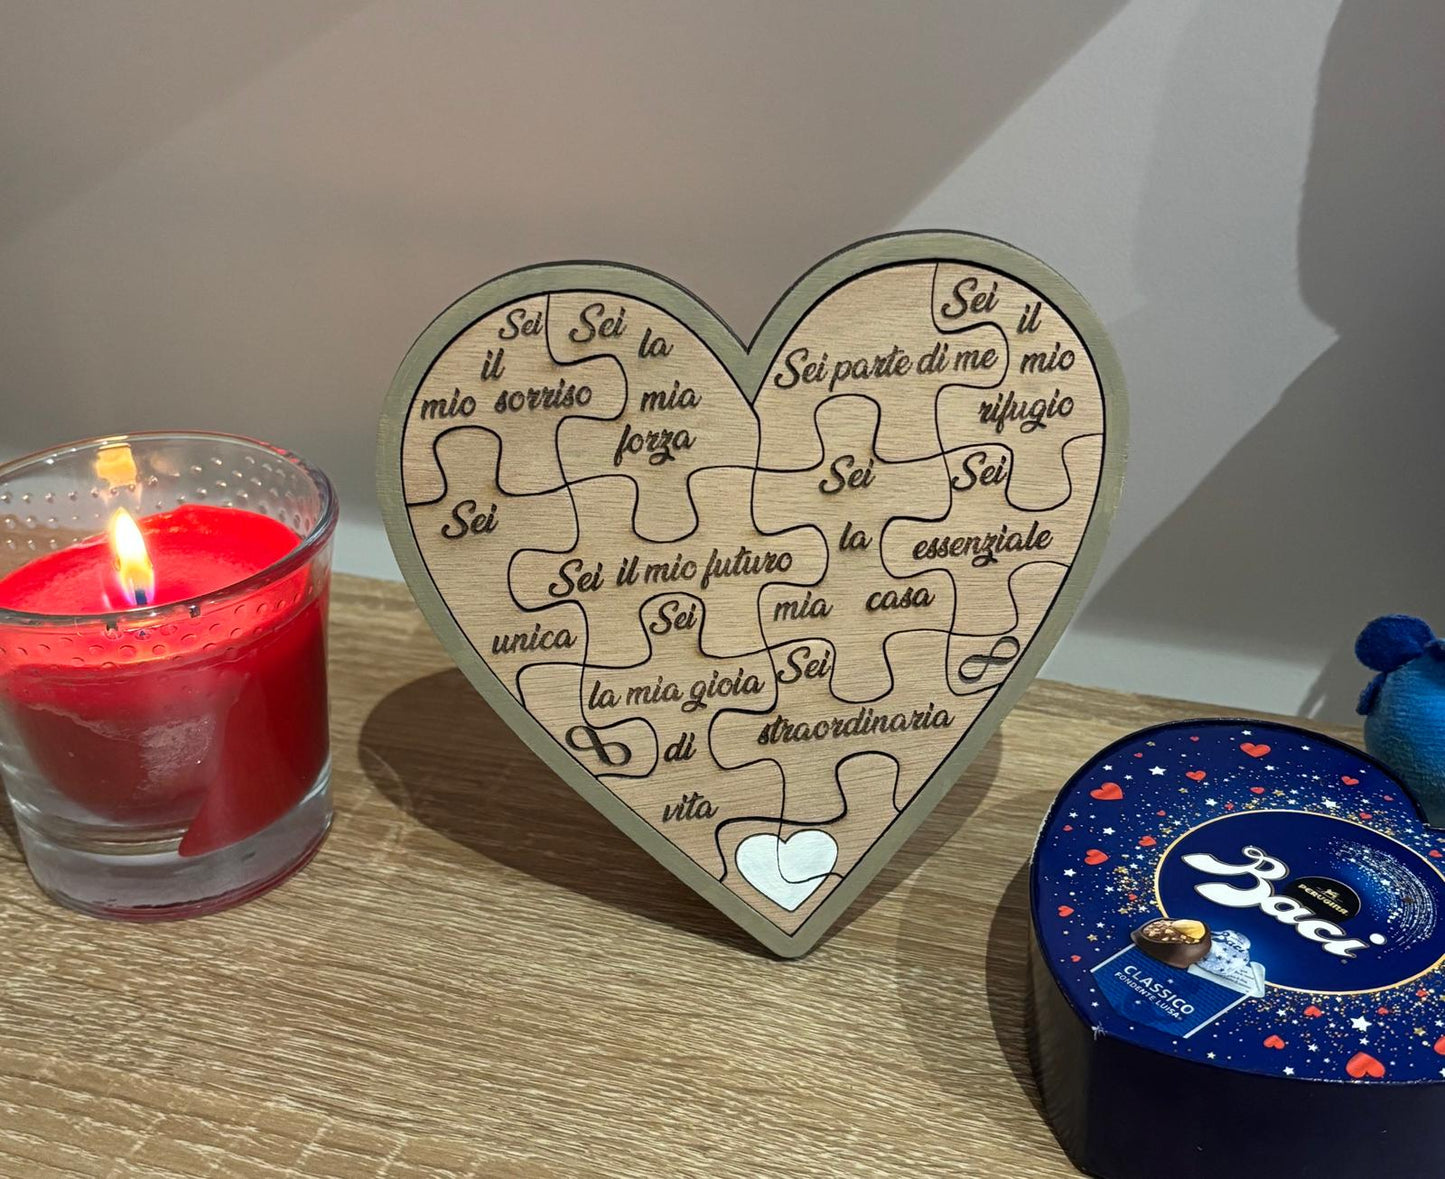 Sei
il
mio sorriso
Sei
la
mia
forza
Sei parte di me
Sei
il
mio
rifugio
Sei
unica
Sei il mio futuro
Sei
la
mia casa
Sei
essenziale
Sei
la mia gioia
di
vita
Sei
straordinaria
Baci
PERUGINA
CLASSICO
FONDENTE LUISA®